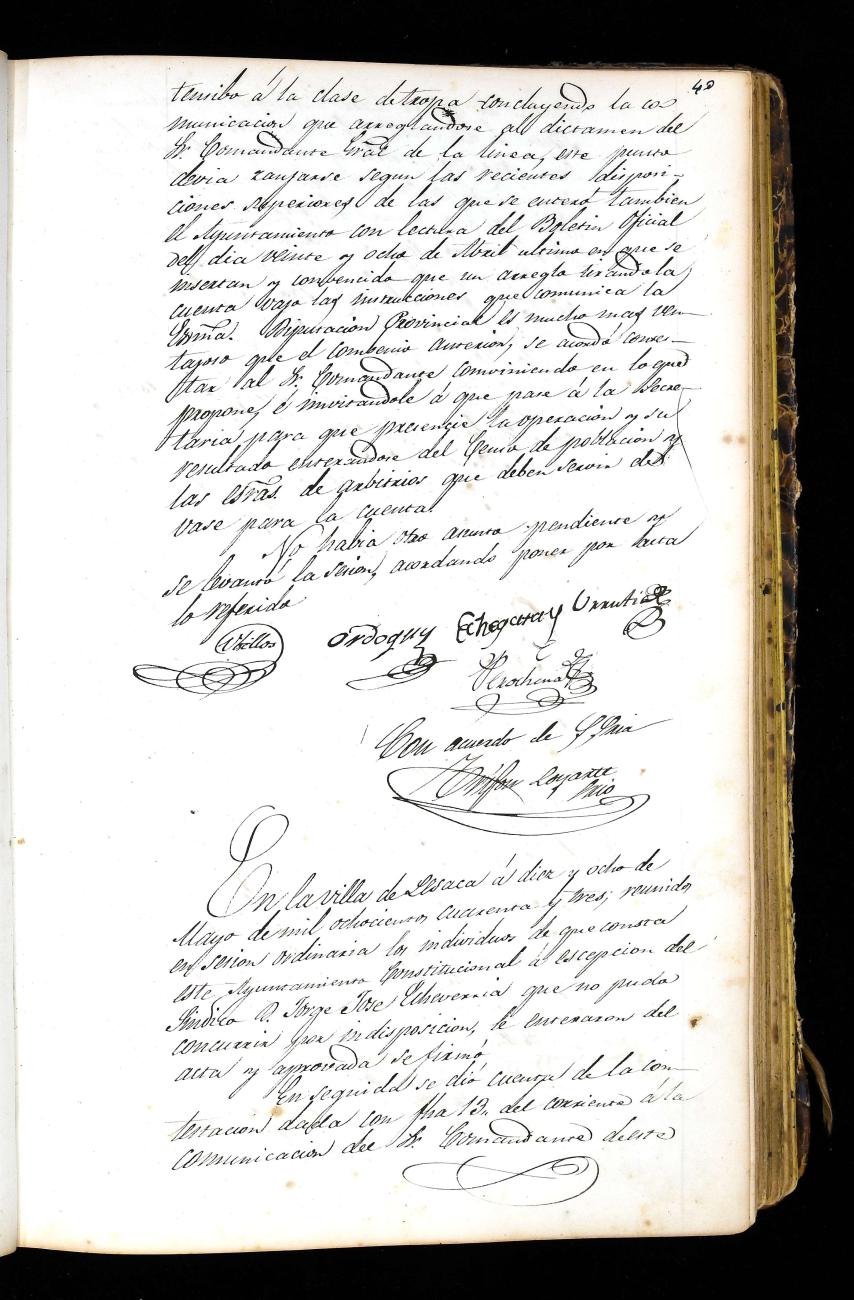 40
tensibo á la clase de tropa concluyendo la co-
municacion que arreglandose al dictamen del
Sr. Comandante Gral de la linea, este punto
devia zanjarse segun las recientes disposi-
ciones superiores, de las que se enteró tambien
el Ayuntamiento con lectura del Boletin Oficial
del dia veinte y ocho de Abril ultimo en que se
insertan y convencido que un arreglo tirandola
cuenta vajo las instrucciones que comunica la
Exma. Diputacion Provincial es mucho mas ven-
tajoso que el combenio anterior, se acordó contes-
tar al Sr. Comandante conviniendo en lo que
propone, é invitandole á que pase á la Secre-
taria, para que presencie la operacion y su
resultado enterandose del Censo de poblacion y
las esras. de arbitrios que deben servir de
vase para la cuenta.
No habia otro asunto pendiente y
se levantó la sesion, acordando poner por acta
lo referido
Ordoquy Echegaray Urrutia
Perochena
Con acuerdo de S. Sria
Loyarte
Srio
En la villa de Lesaca á diez y ocho de
Mayo de mil ochocientos cuarenta y tres; reunidos
en sesion ordinaria los individuos de que consta
este Ayuntamiento Constitucional á escepcion del
Sindico D. Jorge Jose Echeverria que no pudo
concurrir por indisposicion, se enteraron del
acta y aprovada se firmó
En seguida se dió cuenta de la con-
testacion dada con fha 13. del corriente á la
comunicacion del Sr. Comandante de este